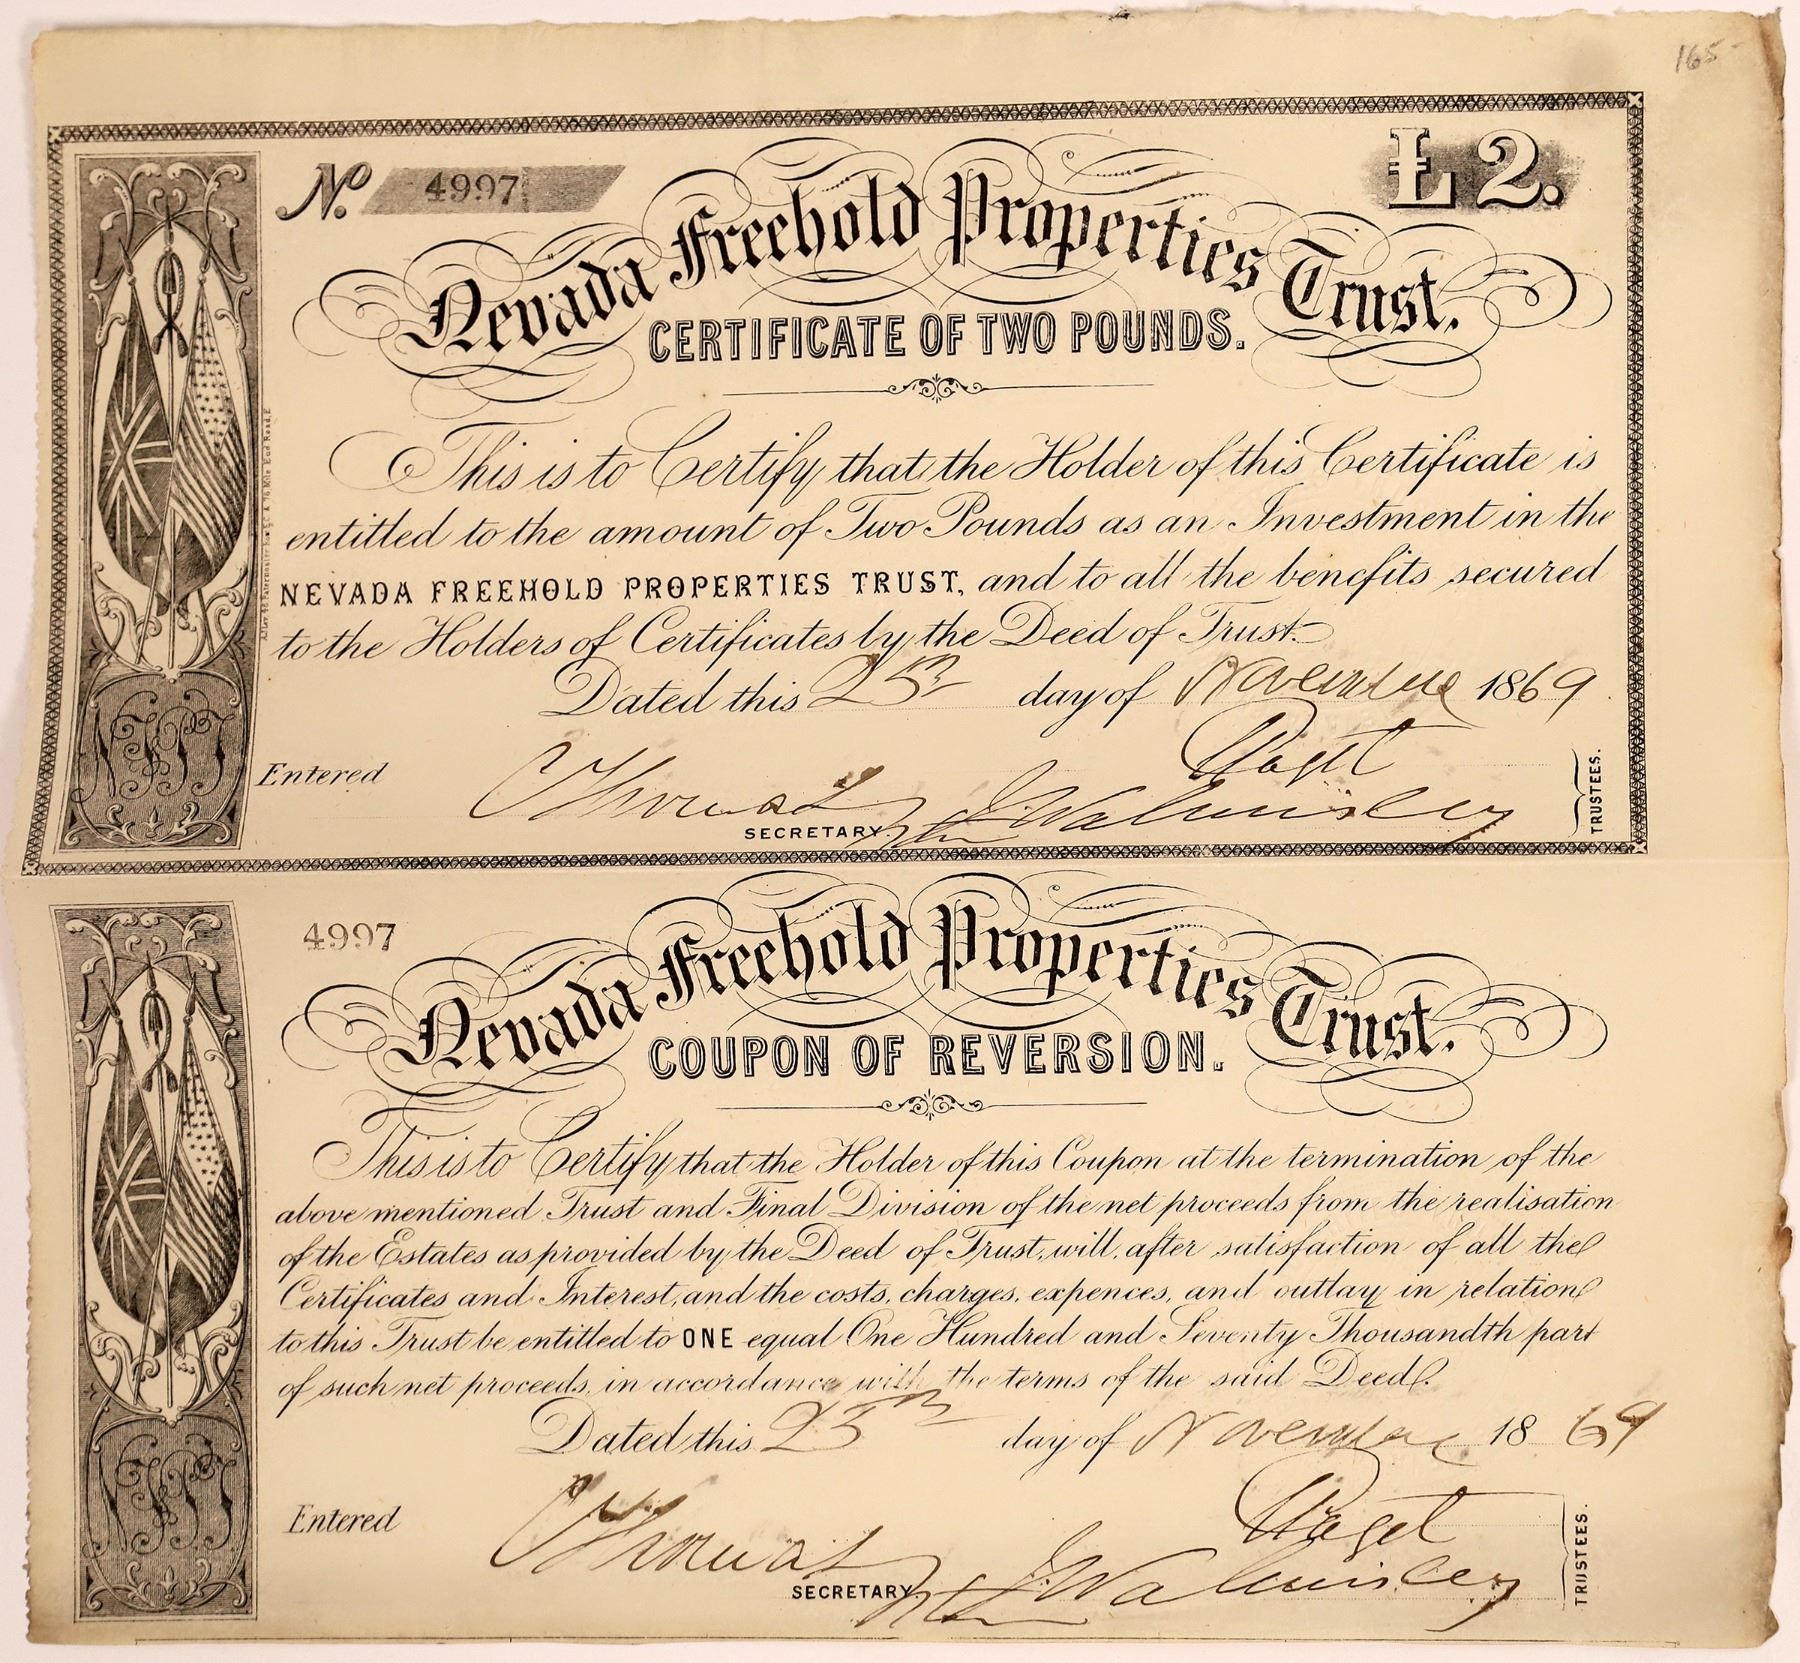 165-
No. 4997
£2.
Nevada Freehold Properties Trust.
CERTIFICATE OF TWO POUNDS.
This is to Certify that the Holder of this Certificate is
entitled to the amount of Two Pounds as an Investment in the
NEVADA FREEHOLD PROPERTIES TRUST, and to all the benefits secured
to the Holders of Certificates by the Deed of Trust.
Dated this 25th day of November 1869
Paget
Entered
J. Walmisley
SECRETARY.
TRUSTEES.
NFPT
4997
Nevada Freehold Properties Trust.
COUPON OF REVERSION.
This is to Certify that the Holder of this Coupon at the termination of the
above mentioned Trust and Final Division of the net proceeds from the realisation
of the Estates as provided by the Deed of Trust, will, after satisfaction of all the
Certificates and Interest, and the costs, charges, expences, and outlay in relation
to this Trust be entitled to ONE equal One Hundred and Seventy Thousandth part
of such net proceeds, in accordance with the terms of the said Deed.
Dated this 25th day of November 1869
Paget
Entered
J. Walmisley
SECRETARY
TRUSTEES.
NFPT